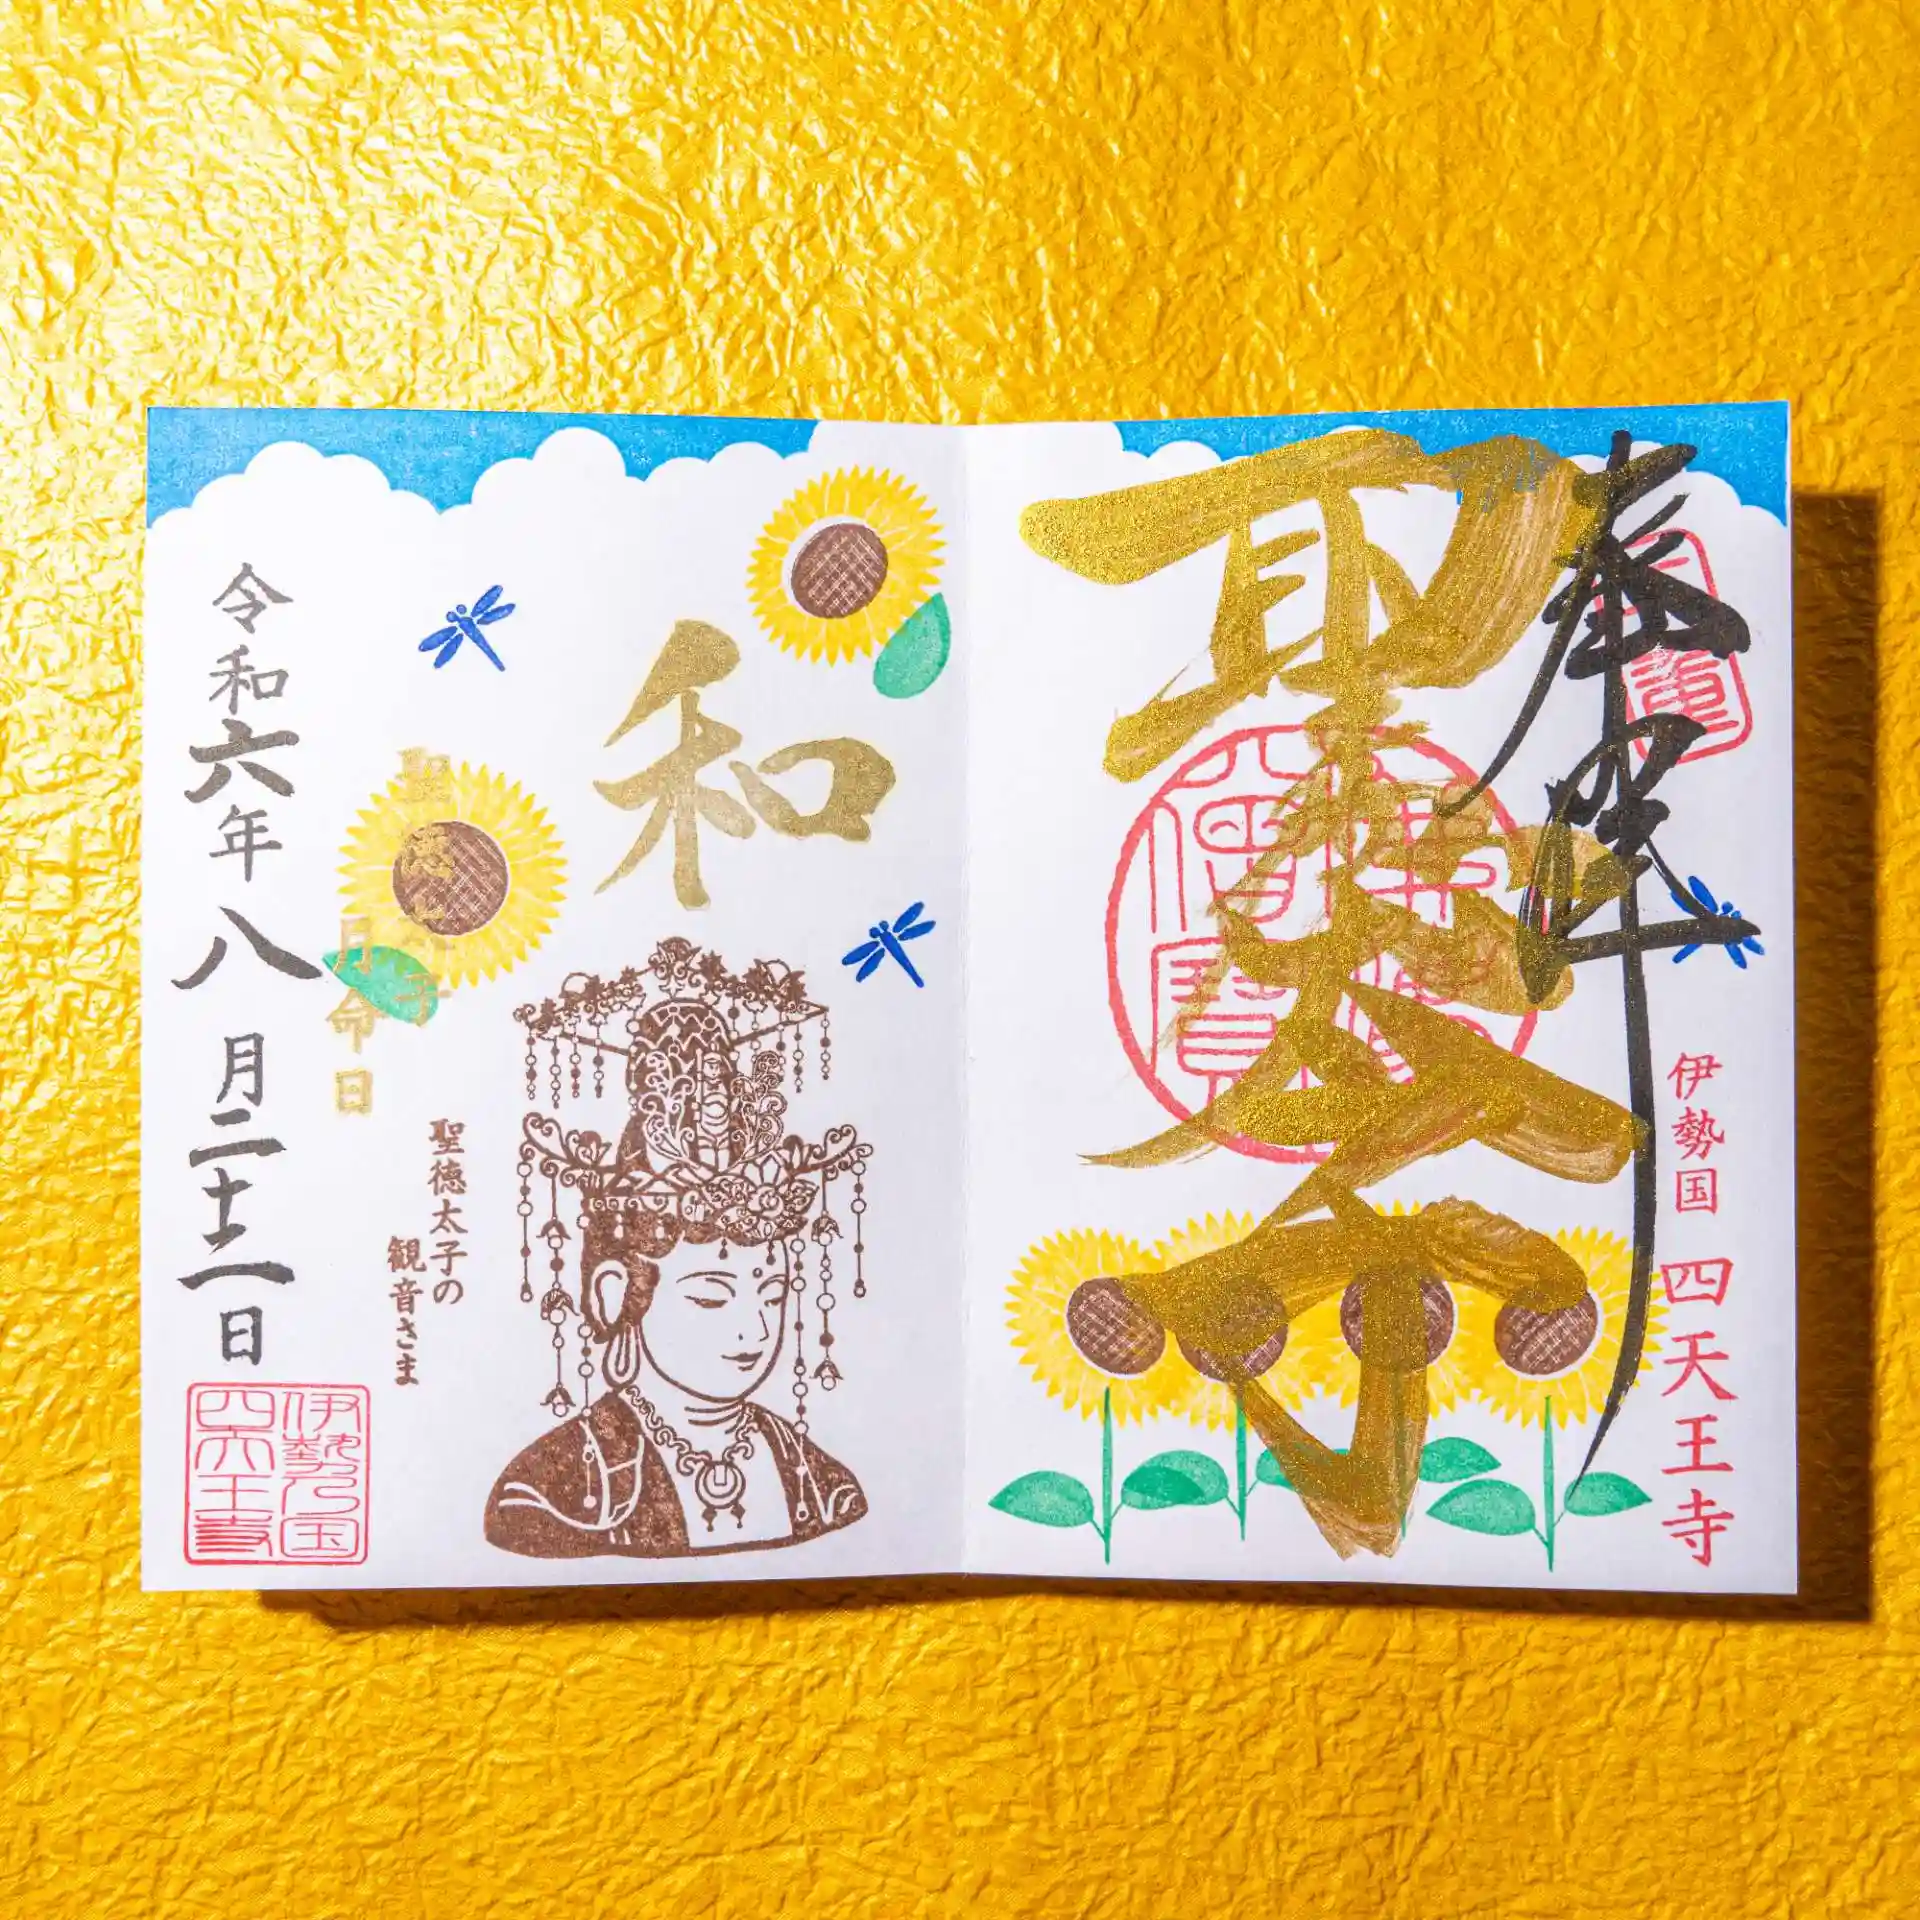 奉拝
伊勢国 四天王寺
聖徳太子
佛法
僧寶
和
聖徳太子の
観音さま
聖徳太子
月命日
令和六年八月二十二日
伊勢乃国
四天王寺